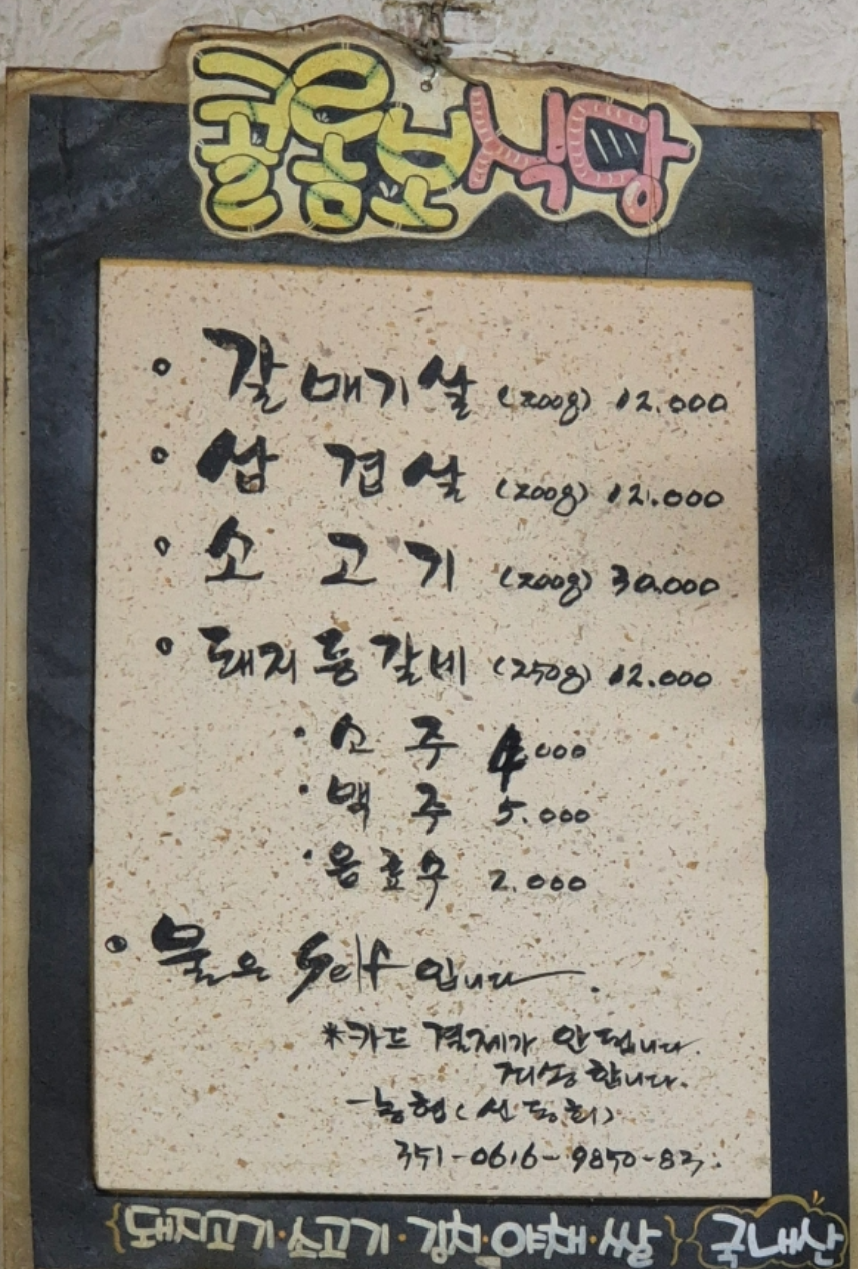 꼴놈보식당
• 갈매기살 (200g) 12.000
• 삼 겹 살 (200g) 12.000
• 소 고 기 (200g) 30.000
• 돼지등갈비 (250g) 12.000
• 소 주 4.000
• 맥 주 5.000
• 음료수 2.000
• 물은 Self 입니다.
*카드 결제가 안됩니다.
죄송합니다.
-농협(선동희)
351-0616-9850-83.
{돼지고기·소고기·김치·야채·쌀} 국내산